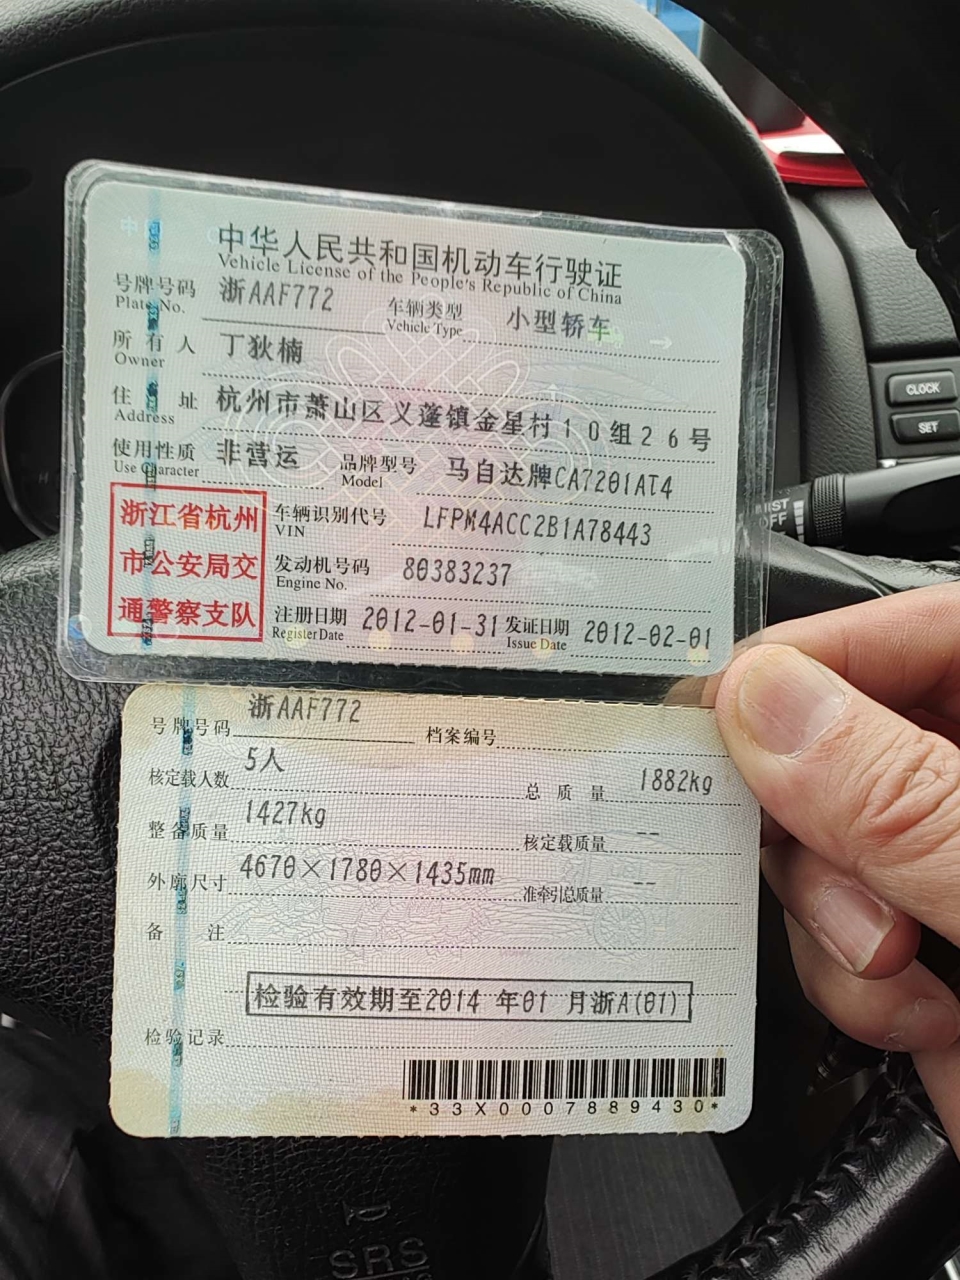 中华人民共和国机动车行驶证
Vehicle License of the People's Republic of China
号牌号码 浙AAF772 车辆类型 小型轿车
Plate No. Vehicle Type
所有人 丁狄楠
Owner
住址 杭州市萧山区义蓬镇金星村10组26号
Address
使用性质 非营运 品牌型号 马自达牌CA7201AT4
Use Character Model
浙江省杭州
市公安局交
通警察支队
车辆识别代号 LFPM4ACC2B1A78443
VIN
发动机号码 80383237
Engine No.
注册日期 2012-01-31 发证日期 2012-02-01
Register Date Issue Date
号牌号码 浙AAF772 档案编号
核定载人数 5人 总质量 1882kg
整备质量 1427kg 核定载质量 --
外廓尺寸 4670×1780×1435mm 准牵引总质量 --
备注
检验有效期至2014 年01 月浙A(01)
检验记录
*33X0007889430*
CLOCK
SET
OFF
SRS